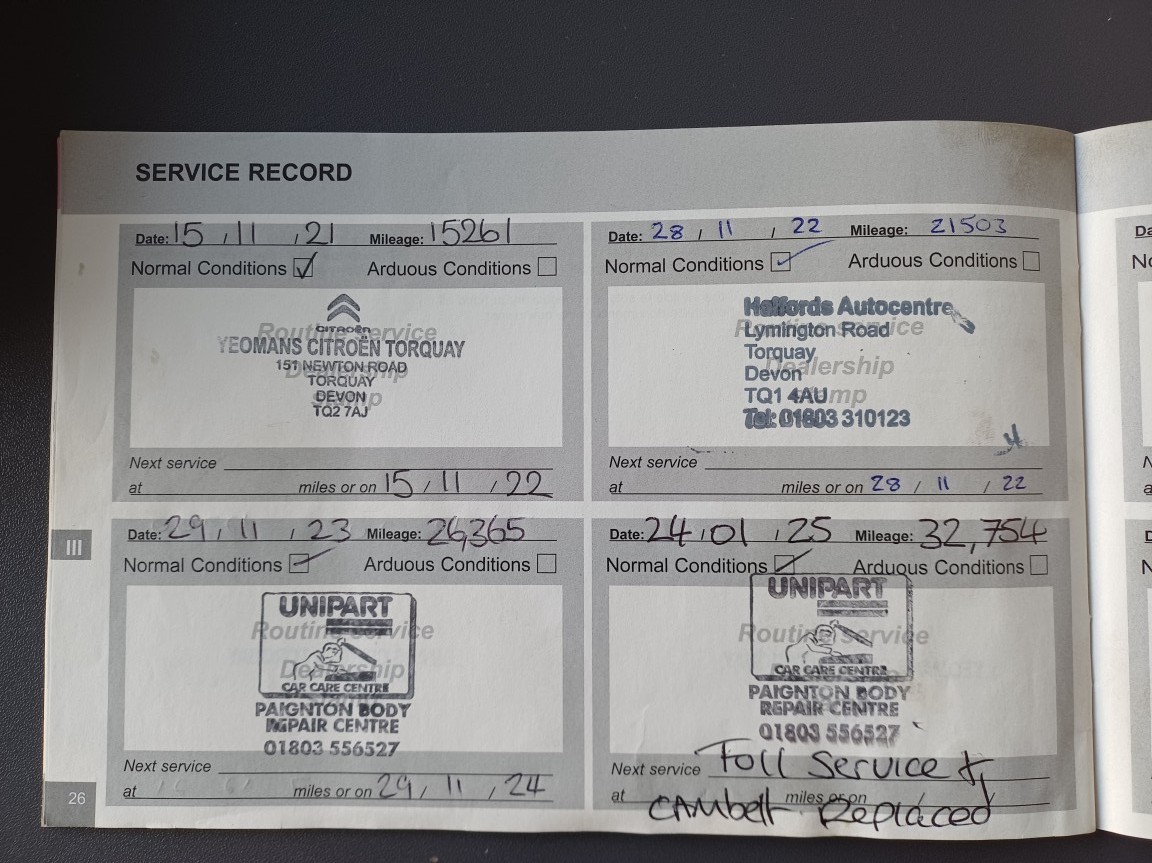 SERVICE RECORD
Date: 15 / 11 / 21 Mileage: 15261
Normal Conditions ✓ Arduous Conditions
Routine service
Dealership
stamp
CITROËN
YEOMANS CITROËN TORQUAY
151 NEWTON ROAD
TORQUAY
DEVON
TQ2 7AJ
Next service
at miles or on 15 / 11 / 22
Date: 28 / 11 / 22 Mileage: 21503
Normal Conditions ✓ Arduous Conditions
Routine service
Dealership
stamp
Halfords Autocentre
Lymington Road
Torquay
Devon
TQ1 4AU
Tel: 01803 310123
Next service
at miles or on 28 / 11 / 22
III
Date: 29 / 11 / 23 Mileage: 26,365
Normal Conditions ✓ Arduous Conditions
Routine service
Dealership
UNIPART
CAR CARE CENTRE
PAIGNTON BODY
REPAIR CENTRE
01803 556527
Next service
at miles or on 29 / 11 / 24
Date: 24 / 01 / 25 Mileage: 32,754
Normal Conditions ✓ Arduous Conditions
Routine service
UNIPART
CAR CARE CENTRE
PAIGNTON BODY
REPAIR CENTRE
01803 556527
Next service Foll Service &
at miles or on / /
CAMbelt Replaced
26
Da